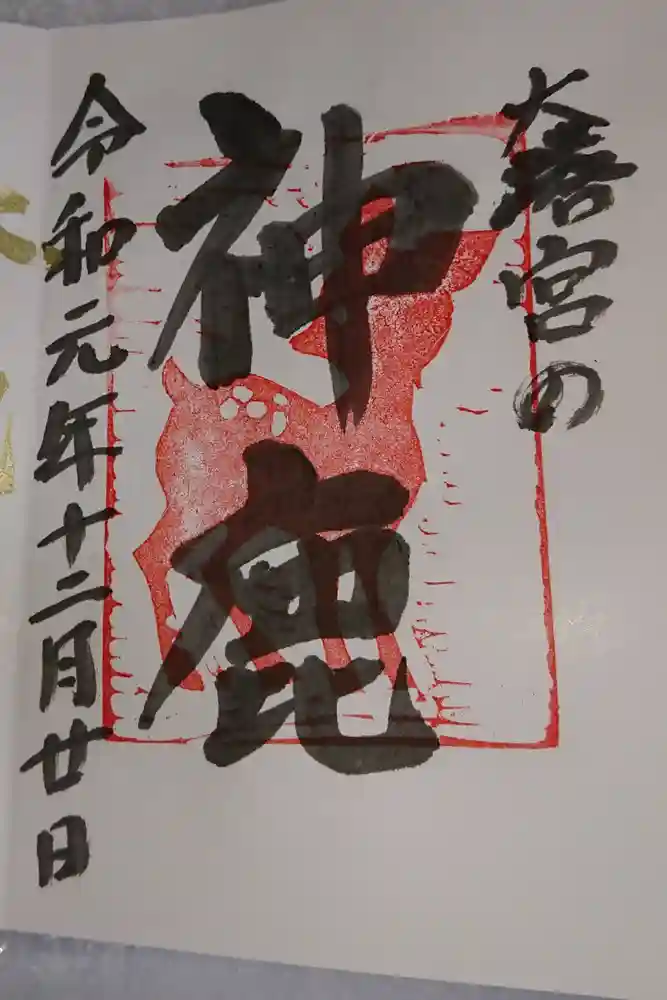 宮の
神鹿
令和元年十二月廿日